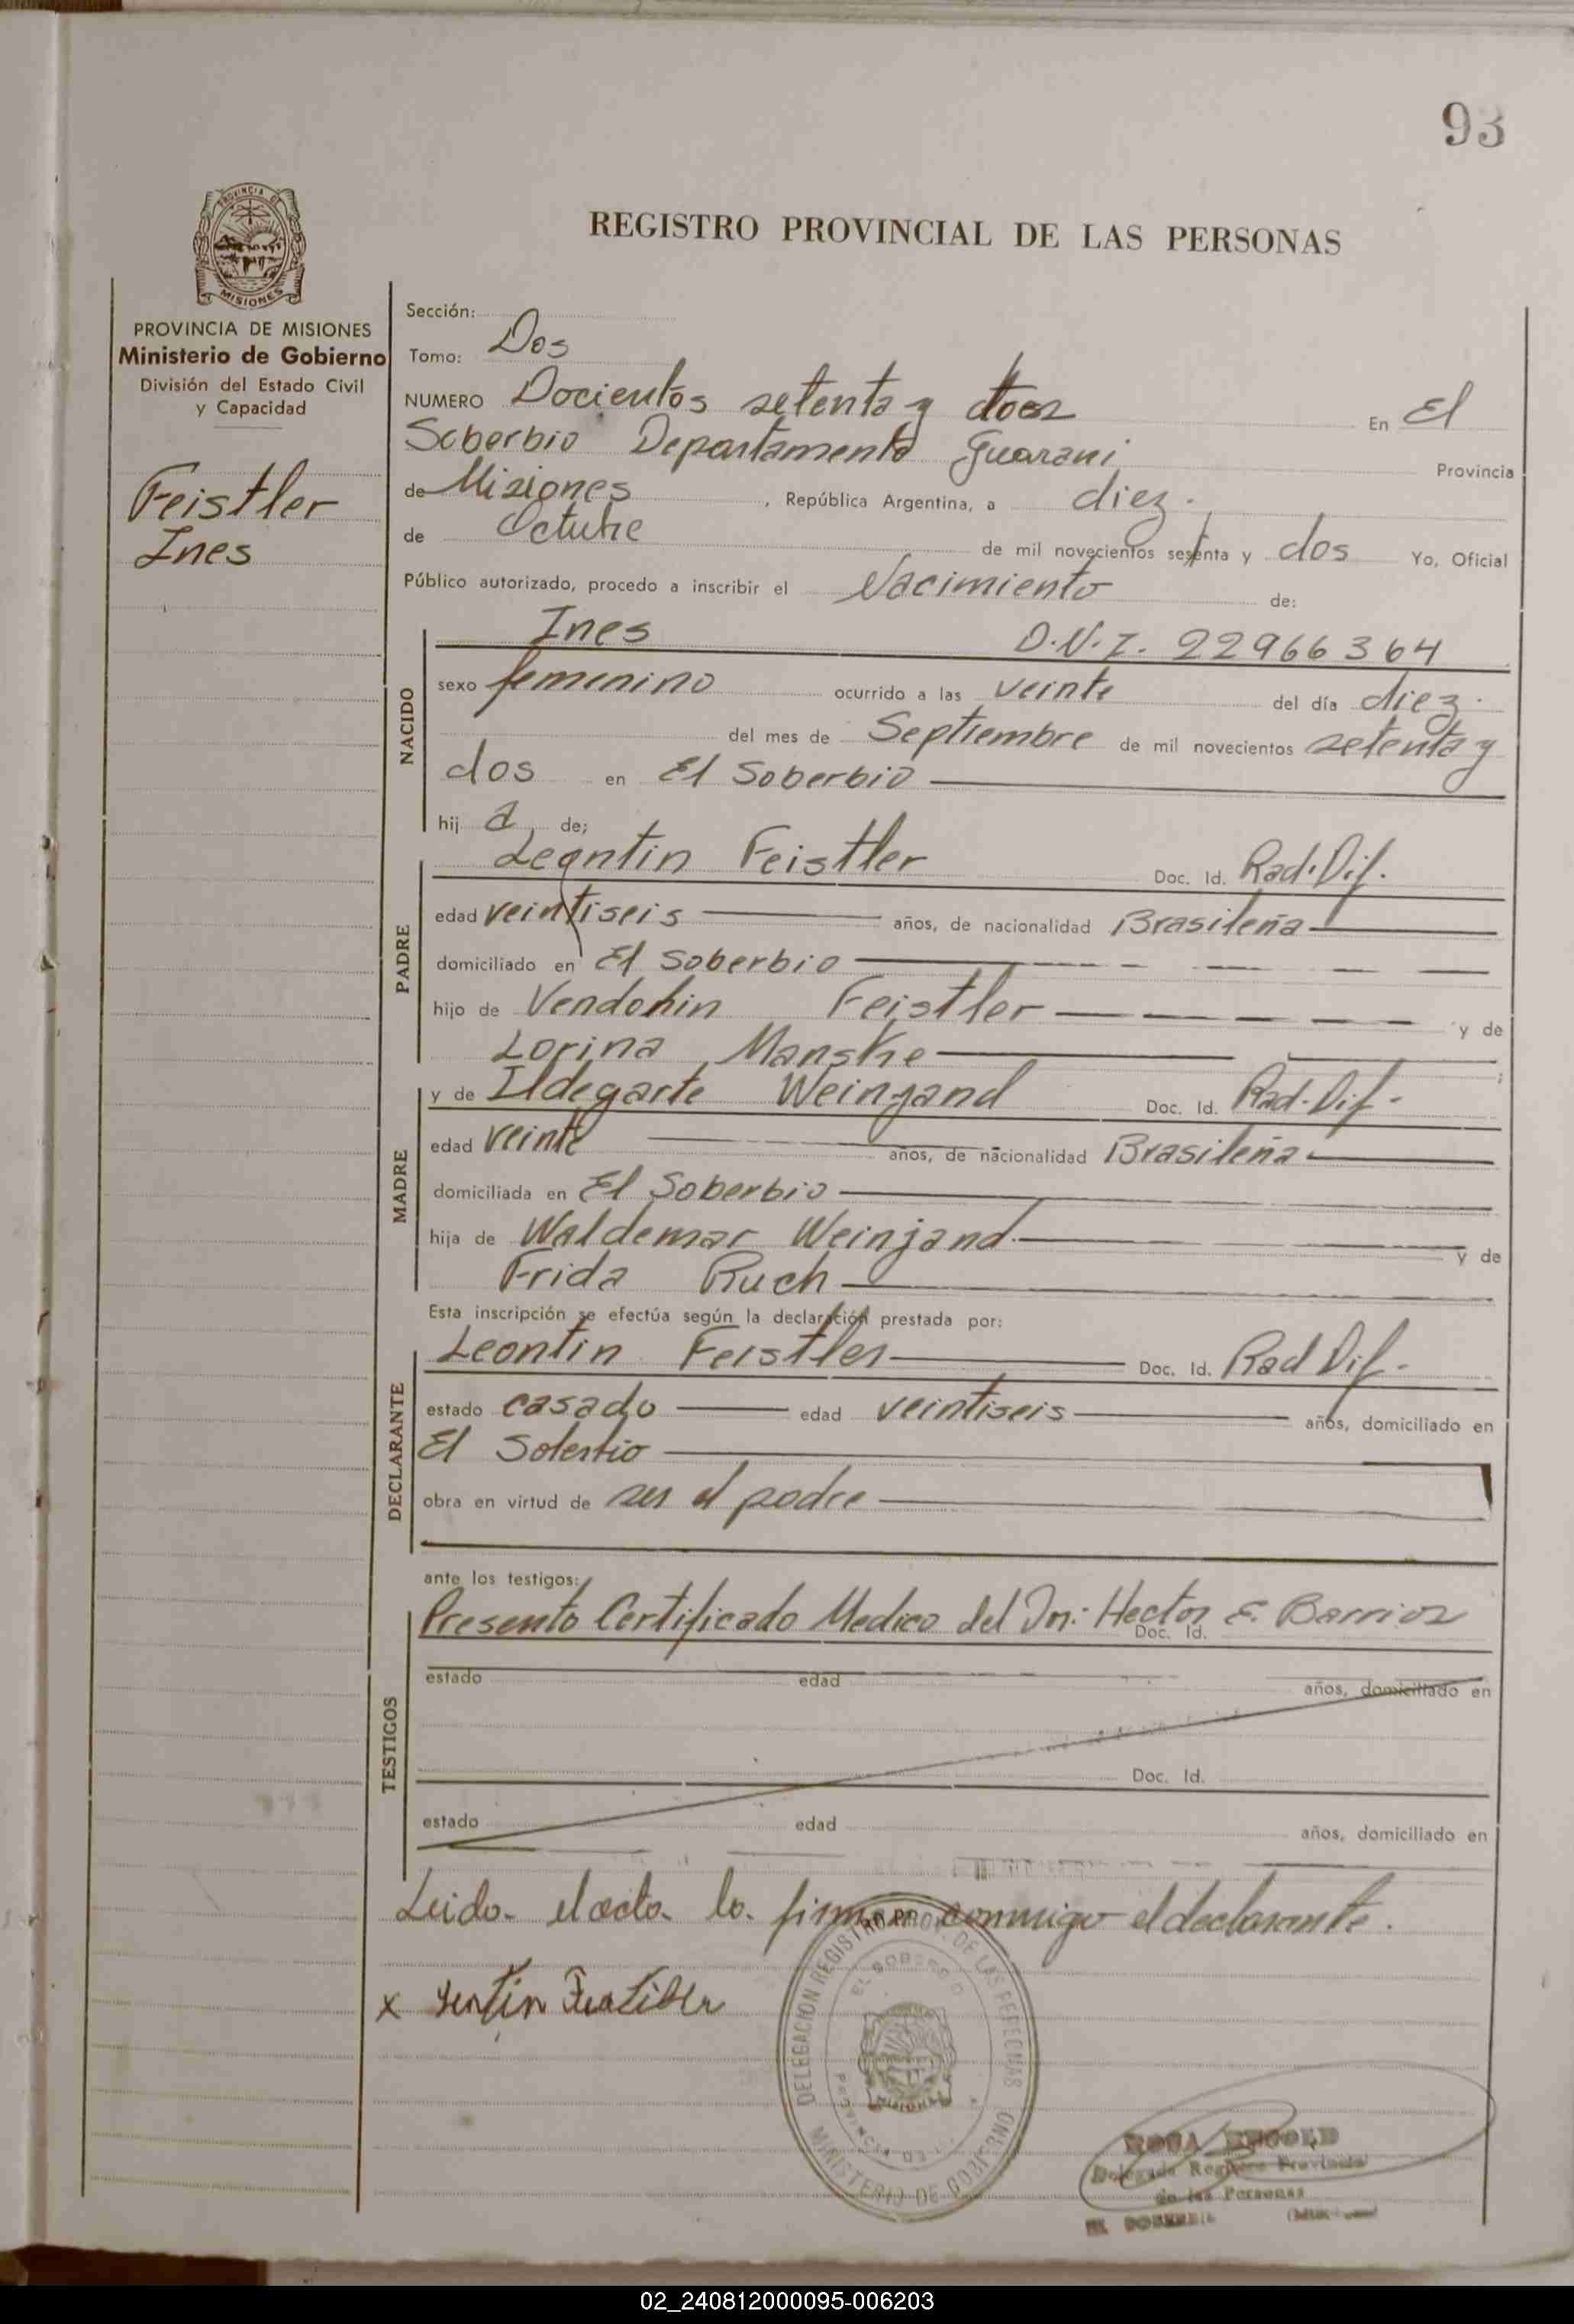 93
PROVINCIA DE
MISIONES
REGISTRO PROVINCIAL DE LAS PERSONAS
PROVINCIA DE MISIONES
Ministerio de Gobierno
División del Estado Civil
y Capacidad
Feistler
Ines
Sección:
Tomo: Dos
NUMERO Docientos setenta y En El
Soberbio Departamento Guarani Provincia
de Misiones, República Argentina, a diez.
de Octubre de mil novecientos setenta y dos Yo, Oficial
Público autorizado, procedo a inscribir el Nacimiento de:
NACIDO
Ines D.N.I. 22966364
sexo femenino ocurrido a las veinte del día diez.
del mes de Septiembre de mil novecientos setenta y
dos en El Soberbio
hij a de;
PADRE
Leontin Feistler Doc. Id. Rad. Dif.
edad veintiseis años, de nacionalidad Brasileña
domiciliado en El Soberbio
hijo de Vendolin Feistler y de
Lorina Manske
MADRE
y de Ildegarte Weinjand Doc. Id. Rad. Dif.
edad veinte años, de nacionalidad Brasileña
domiciliada en El Soberbio
hija de Waldemar Weinjand y de
Frida Ruch
Esta inscripción se efectúa según la declaración prestada por:
DECLARANTE
Leontin Feistler Doc. Id. Rad Dif.
estado casado edad veintiseis años, domiciliado en
El Soberbio
obra en virtud de ser el padre
ante los testigos:
TESTIGOS
Presento Certificado Medico del Dr: Hector E. Barrios
Doc. Id.
estado edad años, domiciliado en
Doc. Id.
estado edad años, domiciliado en
Leido el acta la firma conmigo el declarante.
x
DELEGACION REGISTRO PROV. DE LAS PERSONAS
EL SOBERBIO
MISIONES
MINISTERIO DE GOBIERNO
ROSA
Delegada Registro Provincial
de las Personas
EL SOBERBIO
02_240812000095-006203